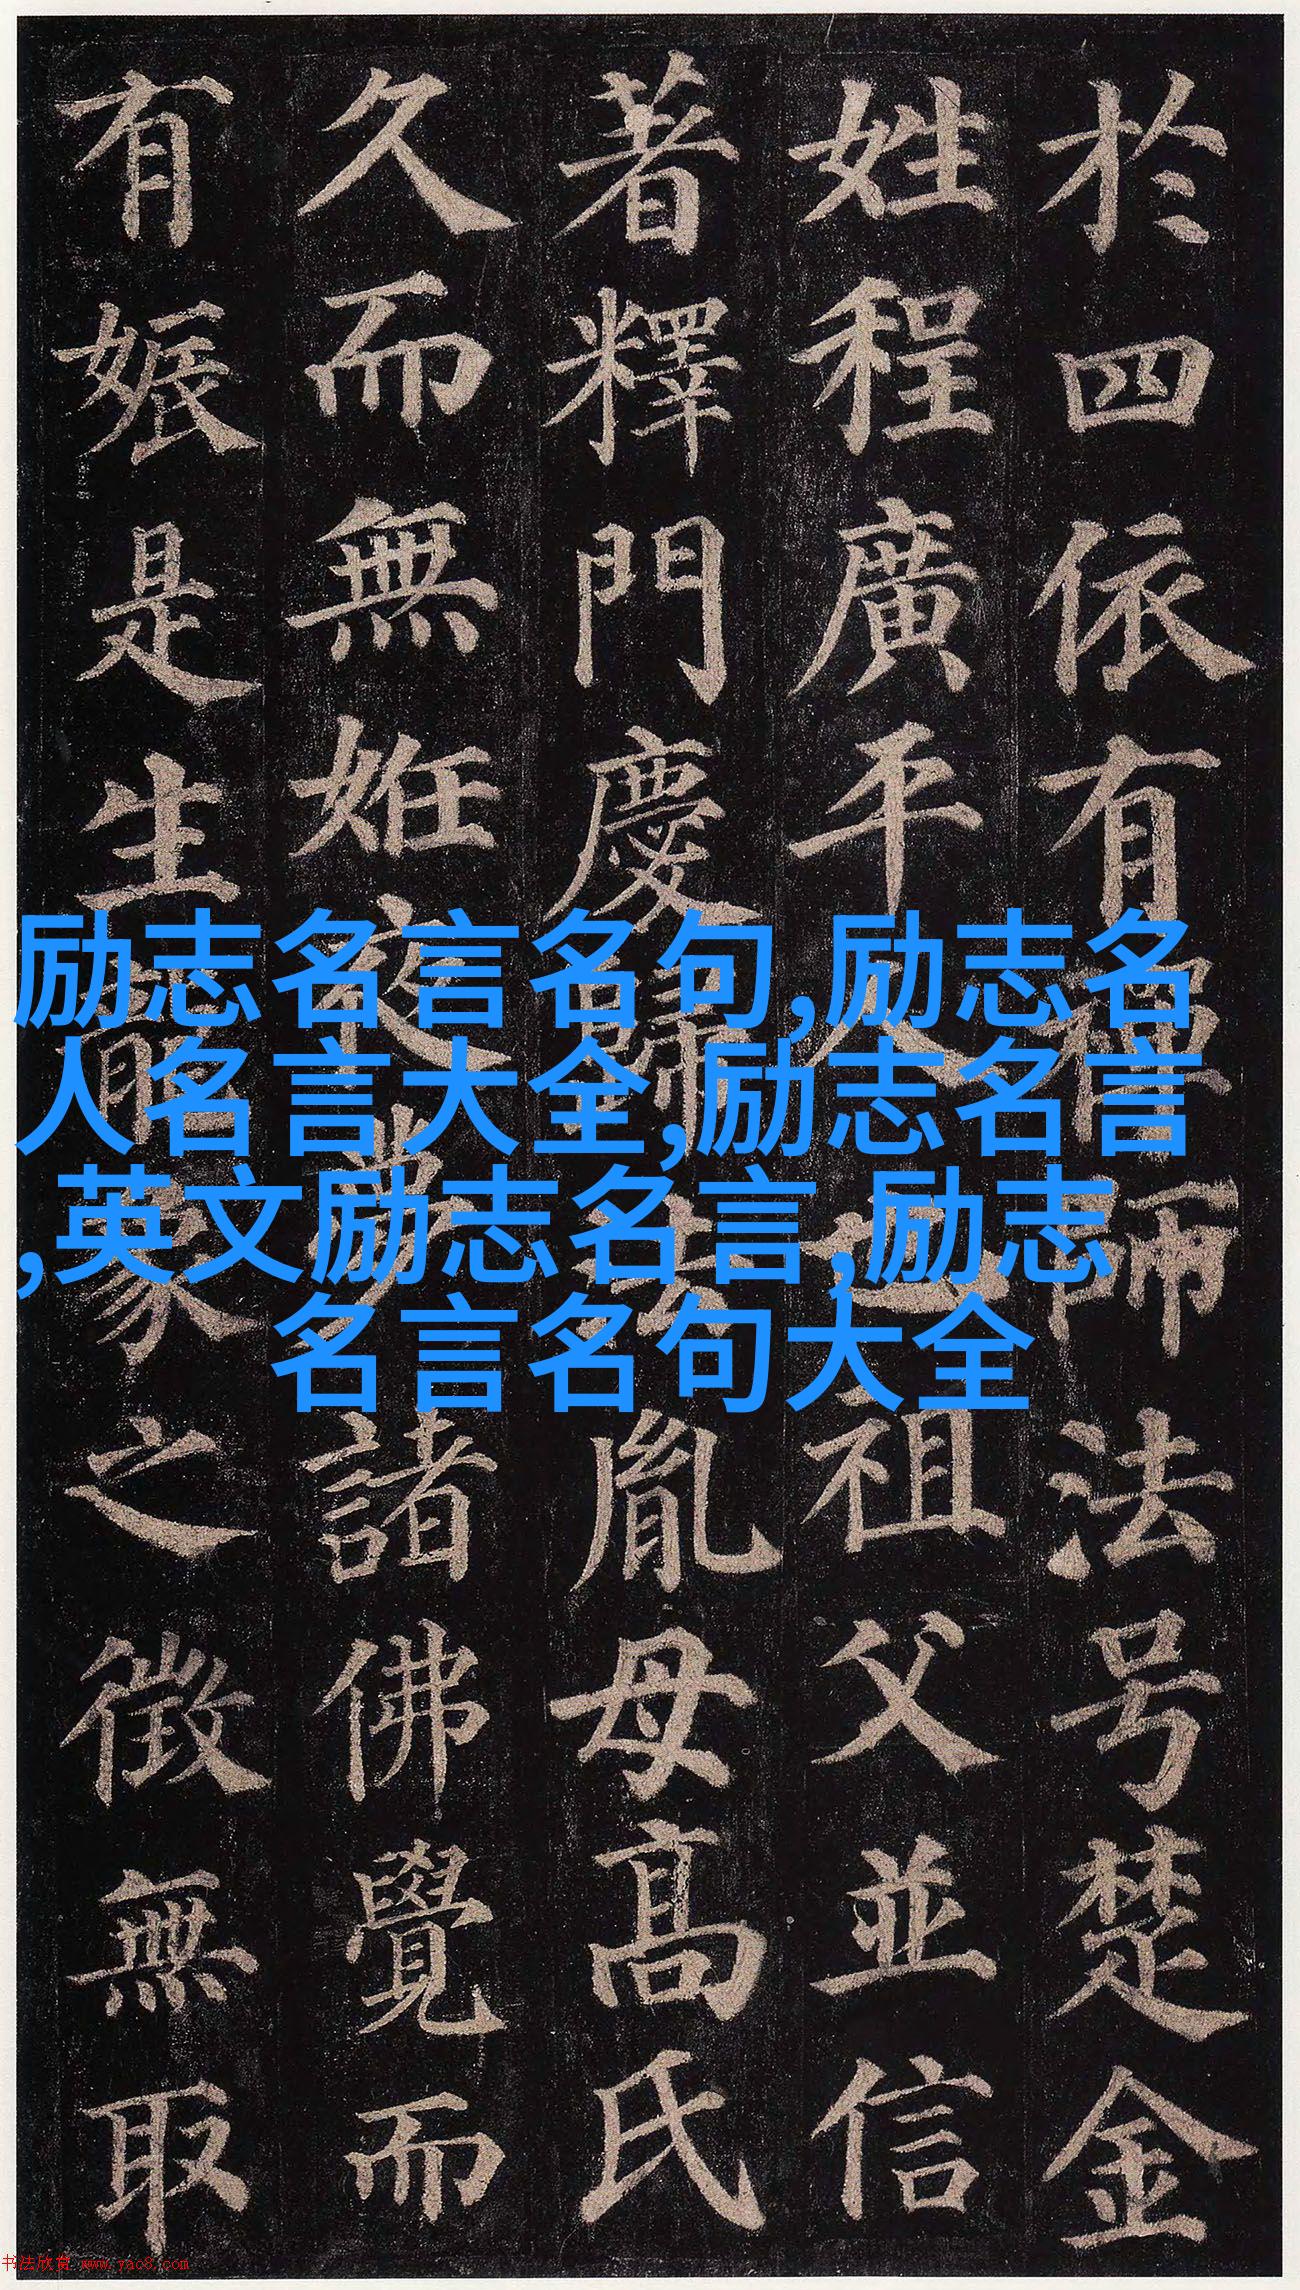 於四依有禪師法号楚金
姓程廣平人也祖父並信
著釋門慶歸法胤母高氏
久而無姙夜夢諸佛覺而
有娠是生龍象之徵無取
励志名言名句,励志名
人名言大全,励志名言
,英文励志名言,励志
名言名句大全
书法欣赏 www.yac8.com